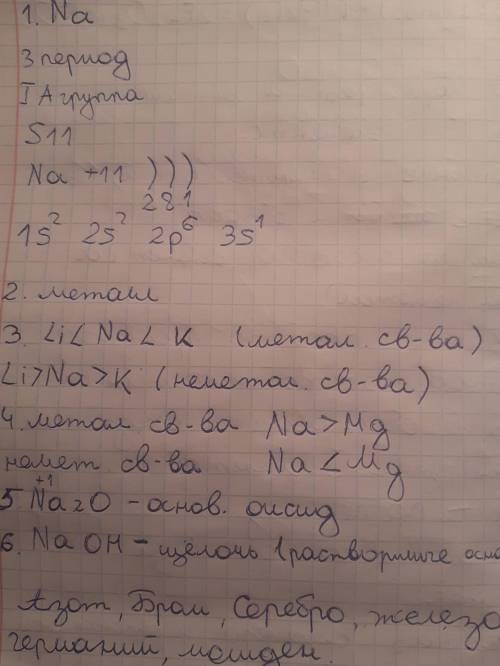 1. Na
3 период
I A группа
S11
Na +11 ) ) )
2 8 1
1s² 2s² 2p⁶ 3s¹
2. металл
3. Li < Na < K (метал. св-ва)
Li > Na > K (неметал. св-ва)
4. метал св-ва Na > Mg
немет св-ва Na < Mg
+1
5 Na2O - основ. оксид
6. NaOH - щёлочь (растворимые осно
Азот, Бром, Серебро, железо
германий, молибден.